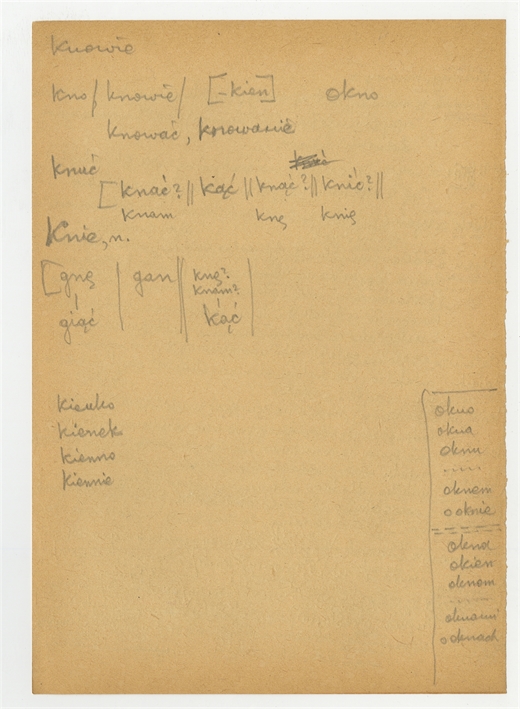 Knowie
kno / knowie / [-kien] okno
knować, knowanie
knuć
[knać? || kąć || knąć? || knić? ||
knam knę knię
Knie, n.
[gnę | gan || knę?
knam?
giąć kąć
kienko
kienek
kienno
kiennie
okno
okna
oknu
.....
oknem
o oknie
okna
okien
oknom
.....
oknami
o oknach